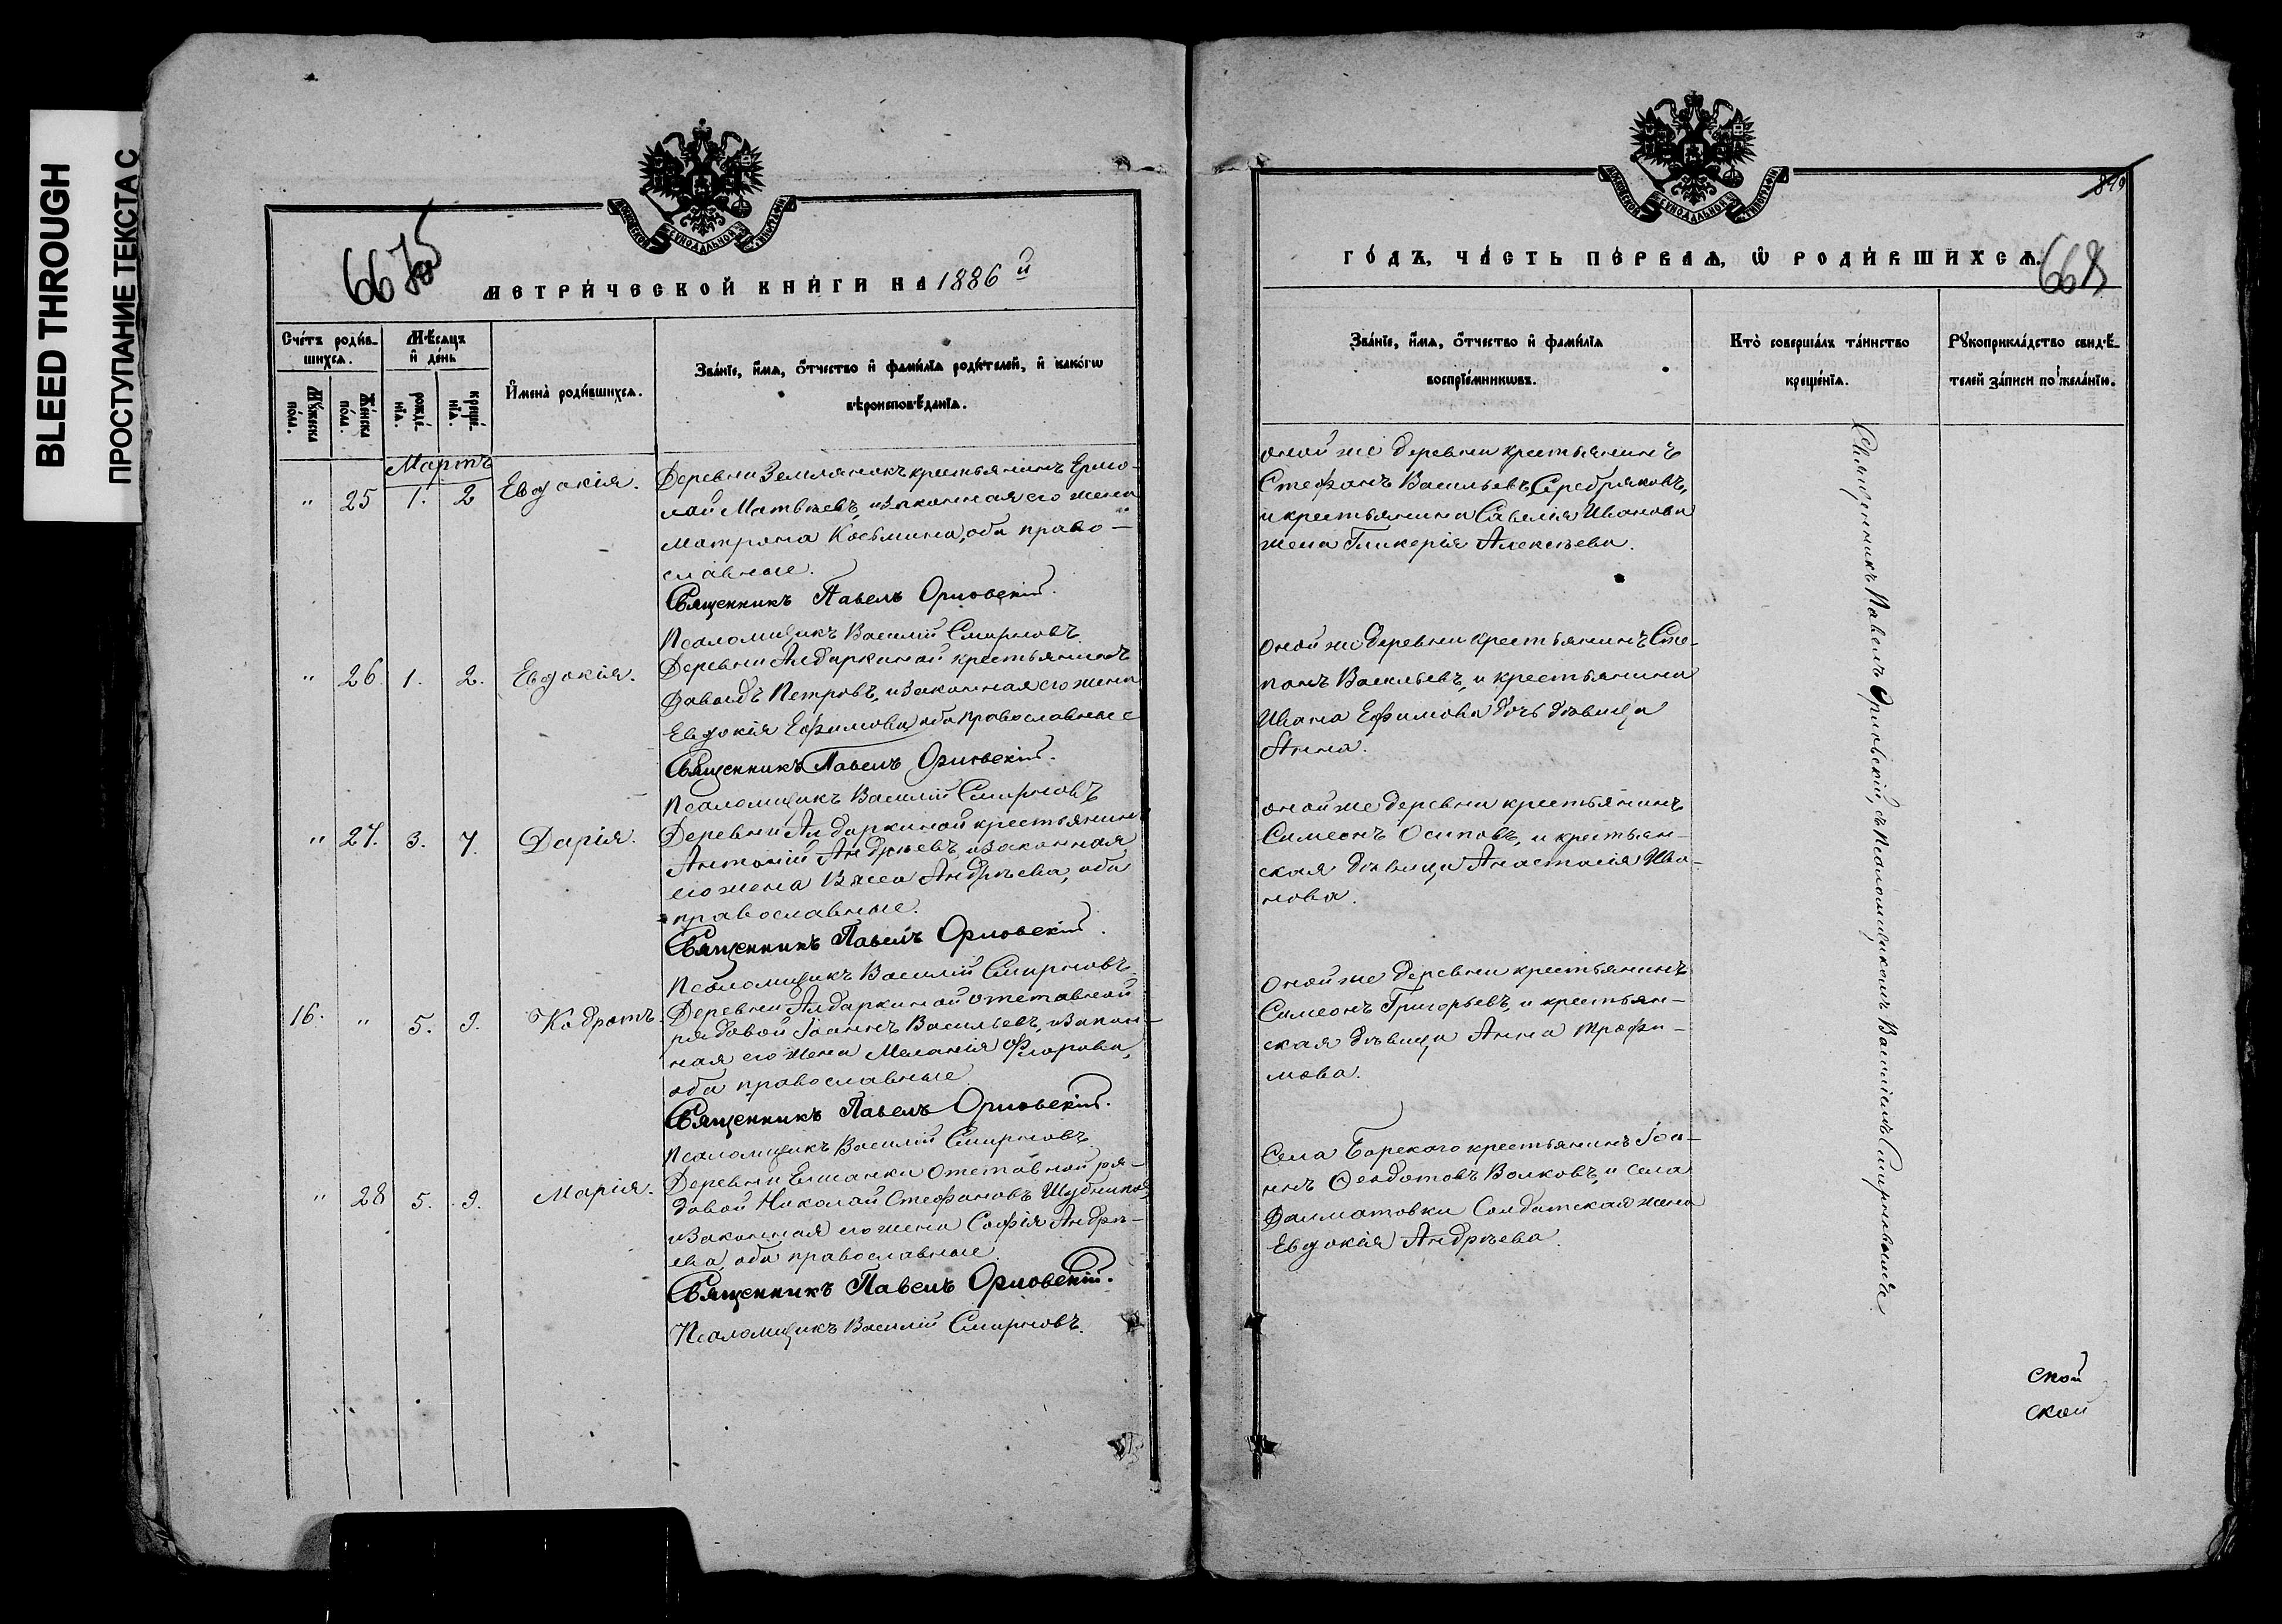 BLEED THROUGH
ПРОСТУПАНИЕ ТЕКСТА С
МОСКОВСКОЙ СѴНОДАЛЬНОЙ ТИПОГРАФІИ
МЕТРИ́ЧЕСКОЙ КНИ́ГИ НА 1886й
Сче́тъ роди́вшихсѧ.
Мѣ́сѧцъ и҆ де́нь
И҆мена̀ роди́вшихсѧ.
Зва́нїе, и҆́мѧ, ѻ҆́тчество и҆ фами́лїѧ роди́телей, и҆ како́гѡ
вѣроисповѣ́данїѧ.
Мꙋ́жеска по́ла.
Же́нска по́ла.
рожде́нїѧ.
креще́нїѧ.
Мартъ
" 25 1. 2 Евдокія.
Деревни Землянокъ крестьянинъ Ермо-
лай Матвѣевъ, и законная его жена
Матрона Косьмина, оба право-
славные.
Священникъ Павелъ Орловскій.
Псаломщикъ Василій Смирновъ.
" 26. 1. 2. Евдокія.
Деревни Алдаркиной крестьянинъ
Давидъ Петровъ, и законная его жена
Евдокія Ефимова, оба православные
Священникъ Павелъ Орловскій.
Псаломщикъ Василій Смирновъ
" 27. 3. 7. Дарія.
Деревни Алдаркиной крестьянинъ
Антоній Андреевъ, и законная
его жена Васса Андреева, оба
православные.
Священникъ Павелъ Орловскій.
Псаломщикъ Василій Смирновъ.
16. " 5. 9. Кодратъ.
Деревни Алдаркиной отставной
рядовой Іоаннъ Васильевъ, и закон-
ная его жена Меланія Флорова,
оба православные
Священникъ Павелъ Орловскій.
Псаломщикъ Василій Смирновъ.
" 28 5. 9. Марія.
Деревни Елшанки отставной ря-
довой Николай Стефановъ
и законная его жена Софія Андрѣ-
ева, оба православные.
Священникъ Павелъ Орловскій.
Псаломщикъ Василій Смирновъ.
МОСКОВСКОЙ СѴНОДАЛЬНОЙ ТИПОГРАФІИ
ГО́ДЪ, ЧА́СТЬ ПЕ́РВАѦ, Ѡ҆ РОДИ́ВШИХСѦ.
668
Зва́нїе, и҆́мѧ, ѻ҆́тчество и҆ фами́лїѧ
воспрїе́мникѡвъ.
Кто̀ соверша́лъ та́инство
креще́нїѧ.
Рꙋкоприкла́дство свидѣ́-
телей за́писи по жела́нїю.
оной же деревни крестьянинъ
Стефанъ Васильевъ Серебряковъ,
и крестьянина Савелія Иванова
жена Гликерія Алексѣева.
оной же деревни крестьянинъ Сте-
панъ Васильевъ, и крестьянина
Ивана Ефимова дочь дѣвица
Анна.
оной же деревни крестьянинъ
Симеонъ Осиповъ, и крестьян-
ская дѣвица Анастасія Ива-
нова.
оной же деревни крестьянинъ
Симеонъ Григорьевъ, и крестьян-
ская дѣвица Анна Трофи-
мова.
Села Борскаго крестьянинъ Іоа-
ннъ Ѳеодотовъ Волковъ, и села
Долматовки Солдатская жена
Евдокія Андрѣева.
Священникъ Павелъ Орловскій, съ Псаломщикомъ Василіемъ Смирновымъ
ской
ской